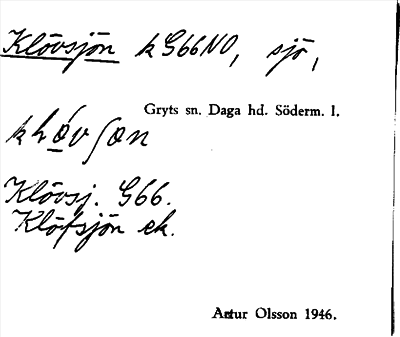 Klövsjön k G66NO, sjö,
Gryts sn. Daga hd. Söderm. l.
Klövsj. G66.
Klöfsjön ek.
Artur Olsson 1946.